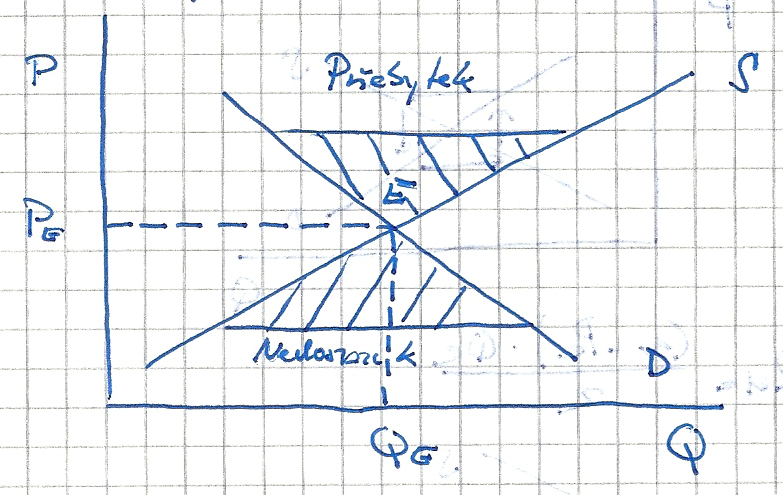 P
Přebytek
S
E
P_E
Nedostatek
D
Q_E
Q